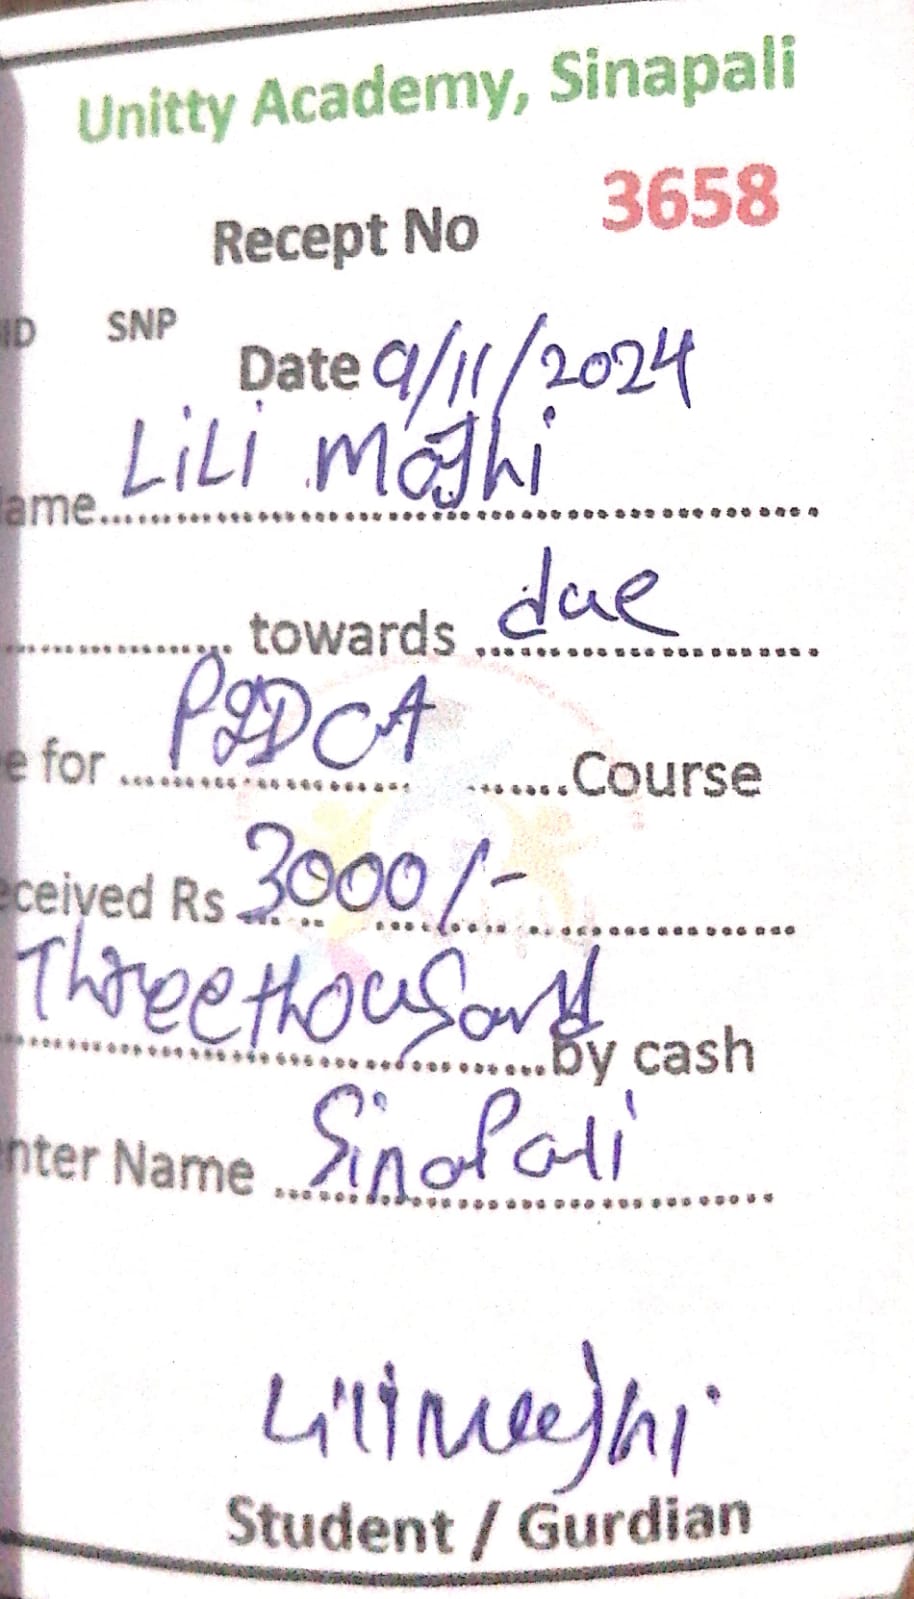 Unitty Academy, Sinapali
Recept No 3658
ID SNP
Date 9/11/2024
ame. LiLi Mājhi
towards due
e for PGDCA Course
ceived Rs 3000/-
Three thousand by cash
nter Name Sinapali
Lili Majhi
Student / Gurdian